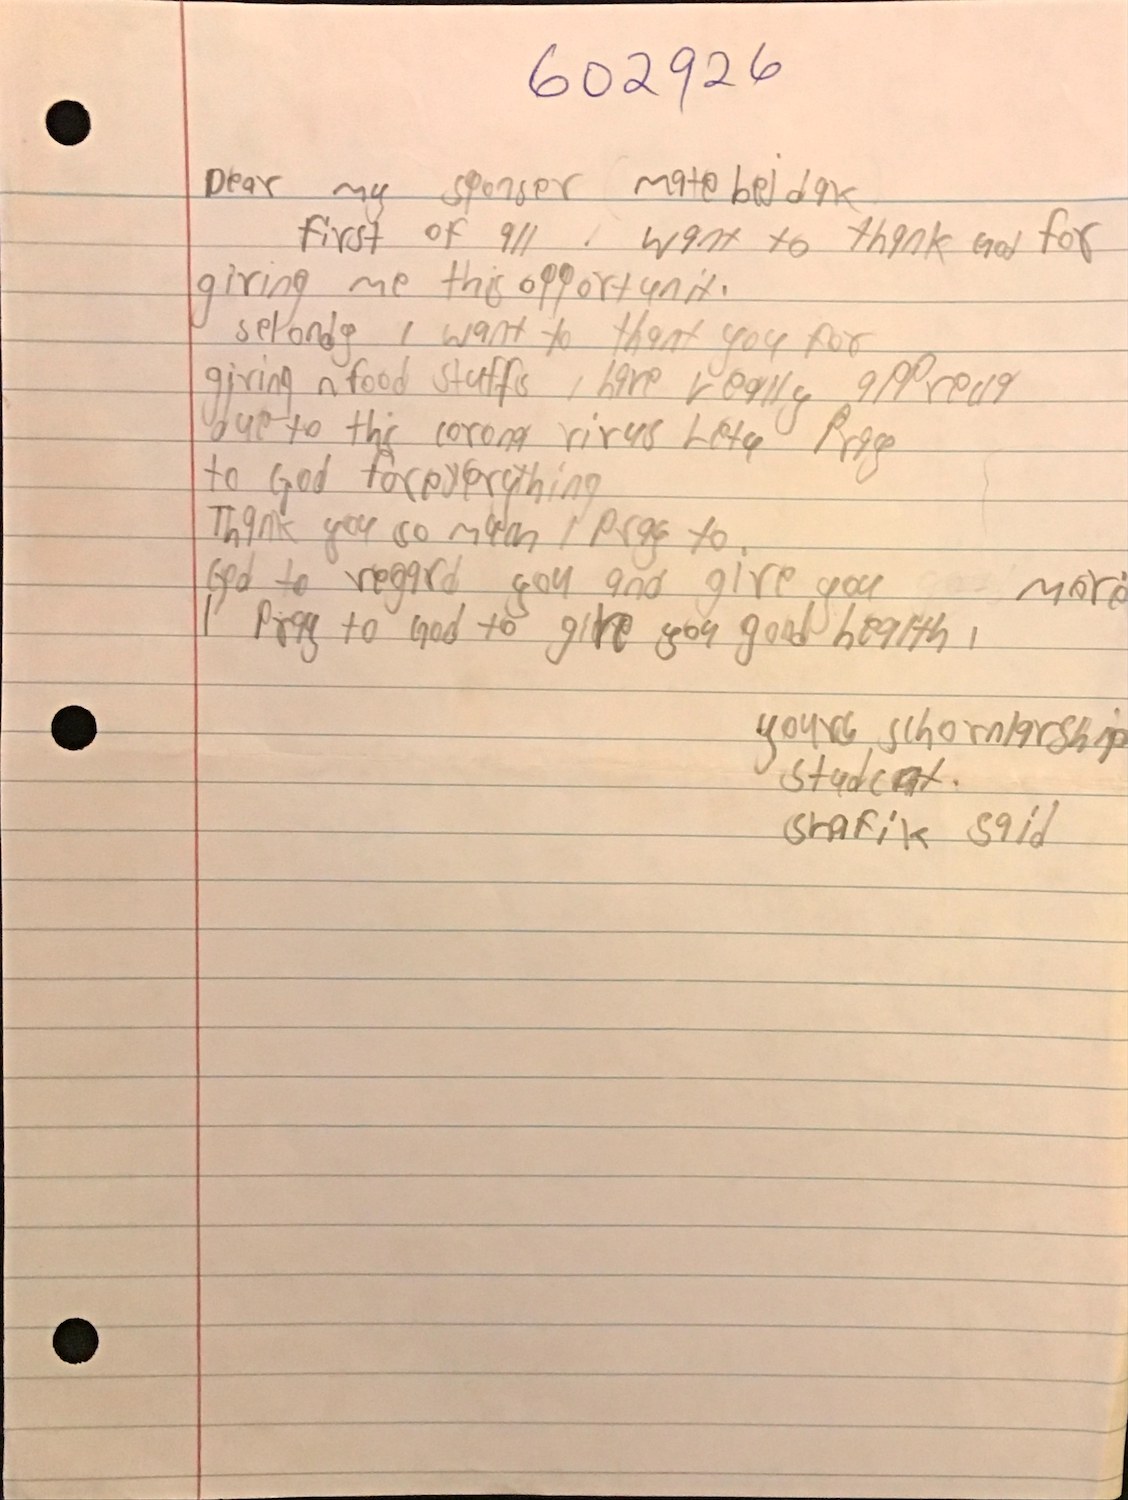 602926
Dear my sponser matebeidak
first of all I want to thank God for
giving me this opportunit.
secondy I want to thant you for
giving n food stuffs I have really apprecia
due to this corona virus Leta Pray
to God foreverything
Thank you so much I Pray to.
God to regard you and give you more
I Pray to God to give you good health,
yours schornlarship
student.
shafik said